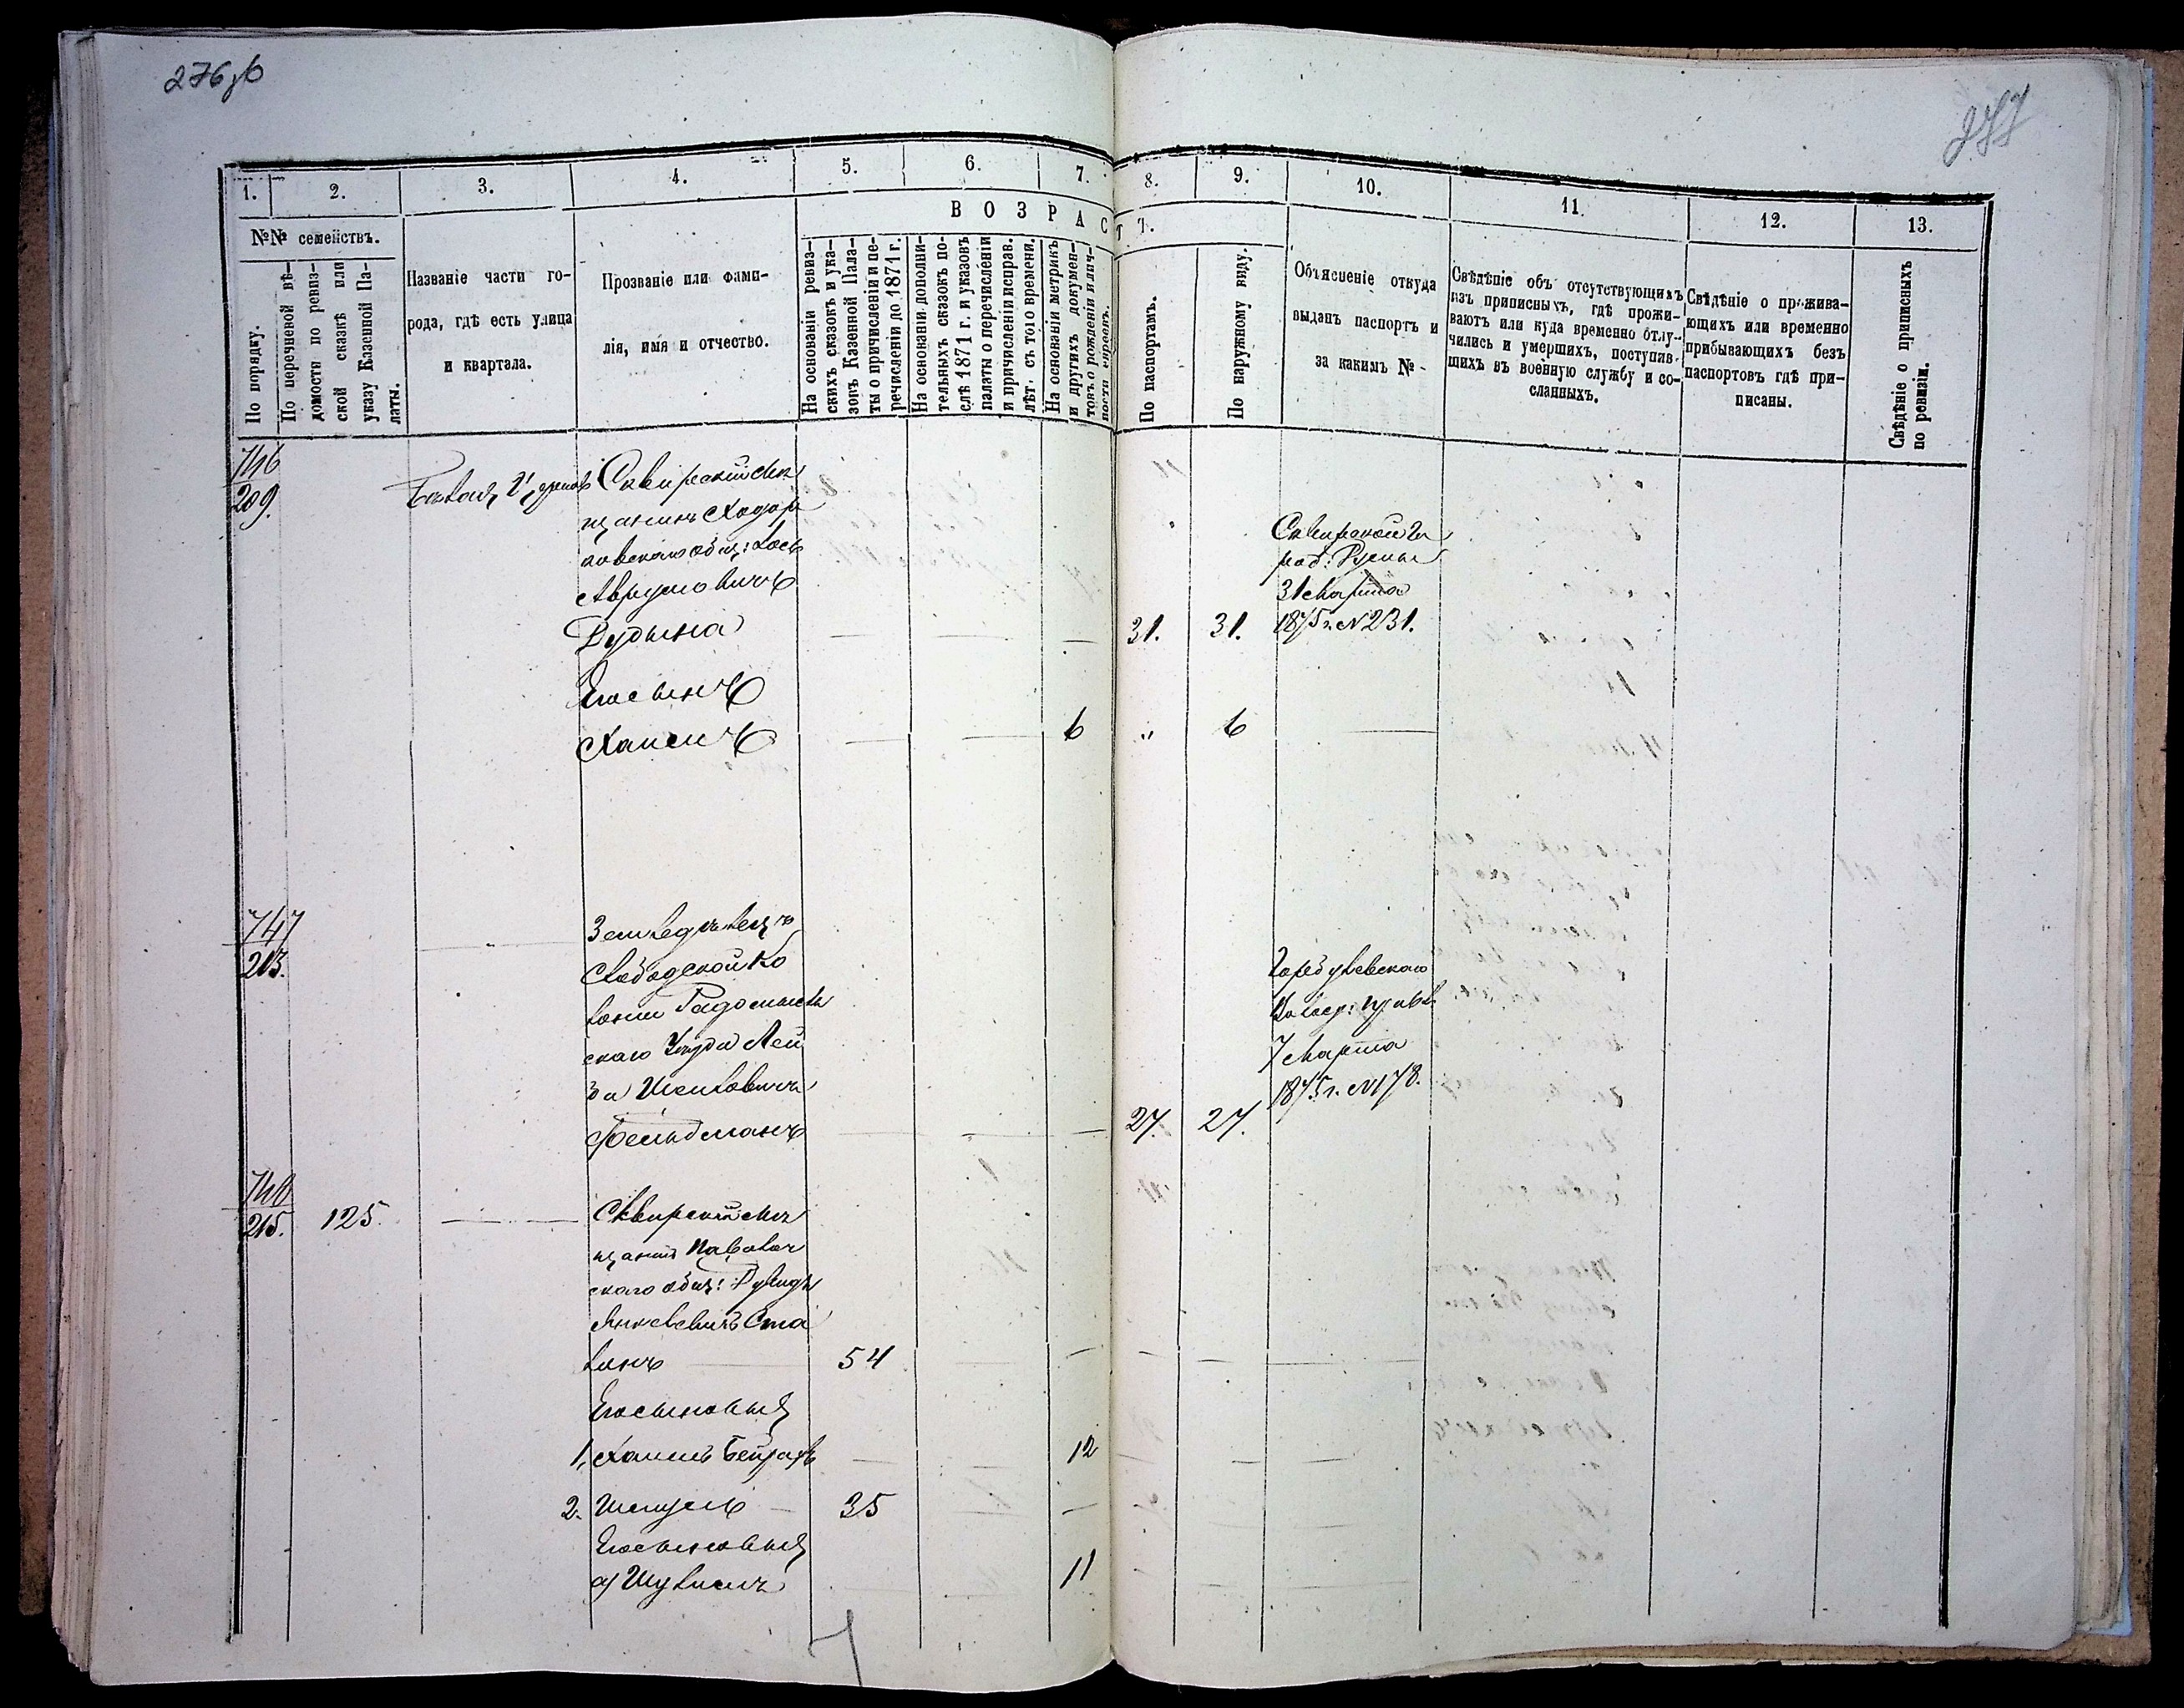 276 об
277
1.
2.
3.
4.
5.
6.
7.
8.
9.
10.
11.
12.
13.
№№ семействъ.
ВОЗРАСТЪ.
По порядку.
По перечневой вѣ-
домости по ревиз-
ской сказкѣ или
указу Казенной Па-
латы.
Названіе части го-
рода, гдѣ есть улица
и квартала.
Прозваніе или фами-
лія, имя и отчество.
На основаніи ревиз-
скихъ сказокъ и ука-
зовъ Казенной Пала-
ты о причисленіи и пе-
речисленіи до 1871 г.
На основаніи дополни-
тельныхъ сказокъ по-
слѣ 1871 г. и указовъ
палаты о перечисленіи
и причисленіи исправ.
лѣт. съ того времени.
На основаніи метрикъ
и другихъ докумен-
товъ о рожденіи и лич-
ности евреевъ.
По паспортамъ.
По наружному виду.
Объясненіе откуда
выданъ паспортъ и
за какимъ №-
Свѣдѣніе объ отсутствующихъ
изъ приписныхъ, гдѣ прожи-
ваютъ или куда временно отлу-
чились и умершихъ, поступив-
шихъ въ военную службу и со-
сланныхъ.
Свѣдѣніе о прожива-
ющихъ или временно
прибывающихъ безъ
паспортовъ гдѣ при-
писаны.
Свѣдѣніе о приписныхъ
по ревизіи.
746
209.
Сквирскій мѣ
щанинъ Ходор
ковскаго общ: Лось
Аврумовичъ
Рудина — — — 31. 31.
Сквирской Го
род: Думы
31 Марта
1875 г. № 231.
Его сынъ
Хаимъ — — 6 " 6 —
747
213.
Земледѣлецъ
Слободской Ко
лоніи Радомысль
скаго Уѣзда Лей
ба Шмилович
Фельдманъ — — — 27. 27.
Волост: Правл
7 Марта
1875 г. № 178.
748
215. 125. —
Сквирскій мѣ
щанин Паволоч
скаго общ:
Янкелевичъ Сто
ляръ — 54 — — — — —
Его сыновья
1, Хаимъ — — 12 — — —
2. Шмуль — 35 — — — —
Его сыновья
а) — — 11 — — —